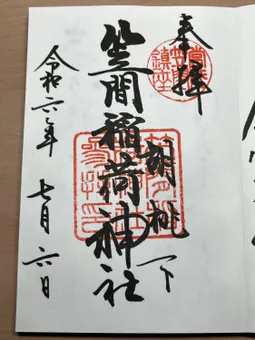 奉拝
胡桃下
笠間稲荷神社
令和六年 七月六日